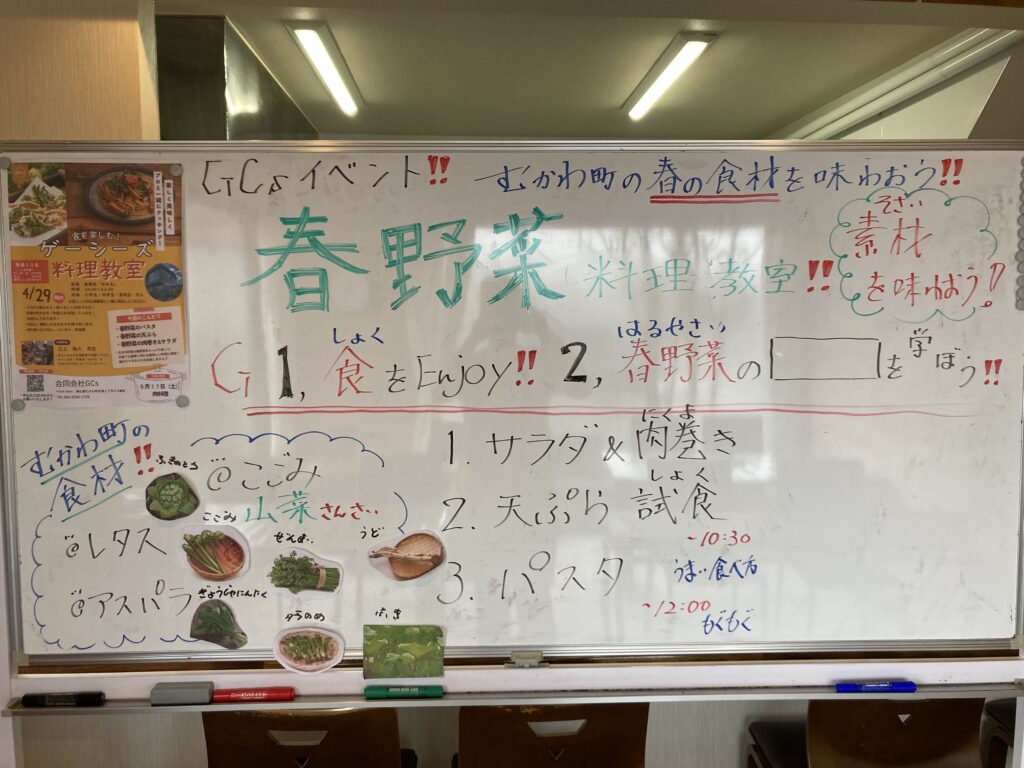 GCsイベント!!
むかわ町の春の食材を味わおう!!
春野菜料理教室!!
そざい
素材
を味わおう!
しょく
はるやさい
G 1, 食をEnjoy!! 2, 春野菜の を学ぼう!!
むかわ町の
食材!!
@こごみ
山菜さんさい
@レタス
@アスパラ
ふきのとう
こごみ
せり
うど
ぎょうじゃにんにく
タラのめ
ふき
にくま
1. サラダ&肉巻き
ししょく
2. 天ぷら 試食
~10:30
3. パスタ
うまい食べ方
~12:00
もぐもぐ
楽しく美味しく
プロと一緒にクッキング!
食を楽しむ!
ゲーシーズ
料理教室
4/29
今回のこんだて
・春野菜のパスタ
・春野菜の天ぷら
・春野菜の肉巻き&サラダ
合同会社GCs
5月17日(土)